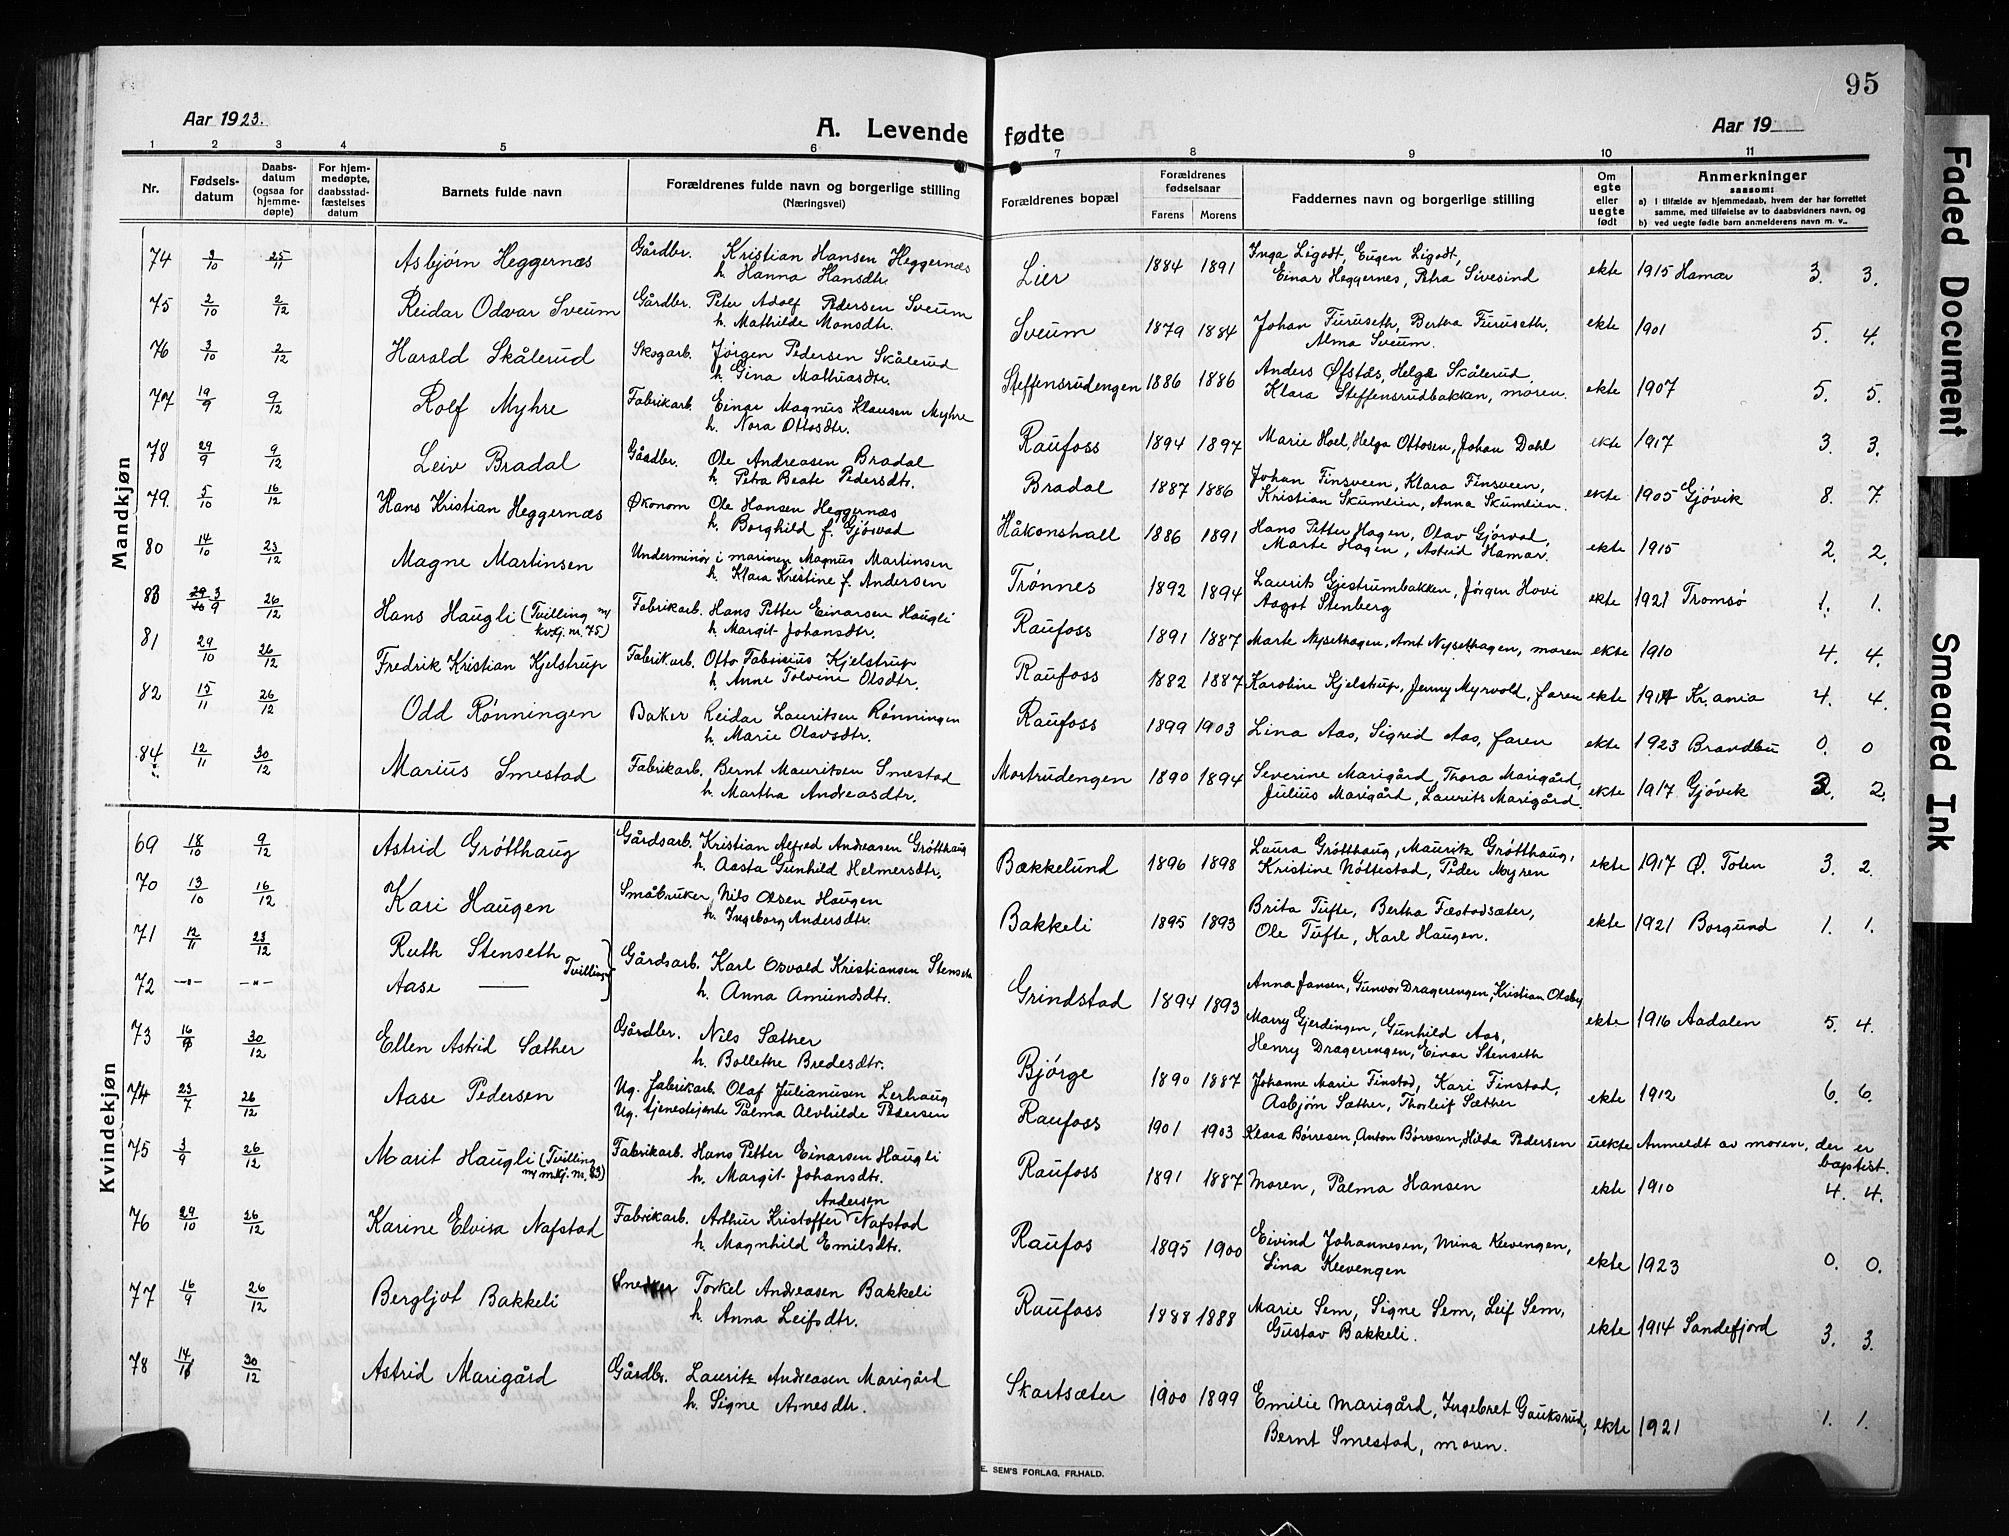 95
Aar 1923.
A. Levende fødte
Aar 19
1 2 3 4 5 6 7 8 9 10 11
Nr.
Fødsels-
datum
Daabs-
datum
(ogsaa for
hjemme-
døpte)
For hjem-
medøpte,
daabsstad-
fæstelses
datum
Barnets fulde navn
Forældrenes fulde navn og borgerlige stilling
(Næringsvei)
Forældrenes bopæl
Forældrenes
fødselsaar
Farens Morens
Faddernes navn og borgerlige stilling
Om
egte
eller
uegte
født
Anmerkninger
saasom:
a) I tilfælde av hjemmedaab, hvem der har forrettet
samme, med tilføielse av to daabsvidners navn, og
b) ved uegte fødte barn anmelderens navn m. v..
Mandkjøn
74 9/10 25/11 Asbjørn Heggernæs Gårdbr. Kristian Hansen Heggernæs
h. Hanna Hansdtr.
Lier 1884 1891 Inga Ligodt, Eugen Ligodt,
Einar Heggernes, Petra Sivesind ekte 1915 Hamar 3. 3.
75 2/10 2/12 Reidar Odvar Sveum Gårdbr. Peter Adolf Pedersen Sveum
h. Mathilde Monsdtr.
Sveum 1879 1884 Johan Furuseth, Bertha Furuseth,
Alma Sveum. ekte 1901 5. 4.
76 3/10 2/12 Harald Skålerud Skogarb. Jørgen Pedersen Skålerud
h. Gina Mathiasdtr.
Steffensrudengen 1886 1886 Anders Øfstås, Helge Skålerud,
Klara Steffensrudbakken, moren. ekte 1907 5. 5.
77 19/9 9/12 Rolf Myhre Fabrikarb. Einar Magnus Klausen Myhre
h. Nora Ottosdtr.
Raufoss 1894 1897 Marie Hoel, Helga Ottosen, Johan Dahl ekte 1917 3. 3.
78 29/9 9/12 Leiv Bradal Gårdbr. Ole Andreasen Bradal
h. Petra Beate Pedersdtr.
Bradal 1887 1886 Johan Finsveen, Klara Finsveen,
Kristian Skumlien, Anna Skumlien. ekte 1905 Gjøvik 8. 7.
79. 5/10 16/12 Hans Kristian Heggernæs Økonom Ole Hansen Heggernæs
h. Borghild f. Gjørvad
Håkonshall 1886 1891 Hans Petter Hagen, Olav Gjørvad,
Marte Hagen, Astrid Hamar. ekte 1915 2. 2.
80 14/10 23/12 Magne Martinsen Underminør i marinen Magnus Martinsen
h. Klara Kristine f. Andersen
Trønnes 1892 1894 Laurits Gjestrumbakken, Jørgen Hovi
Aagot Stenberg ekte 1921 Tromsø 1. 1.
83 3/9 26/12 Hans Haugli (Tvilling m
kvkj. nr. 75) Fabrikarb. Hans Petter Einarsen Haugli
h. Margit Johansdtr.
Raufoss 1891 1887 Marte Nysethagen, Arnt Nysethagen, moren ekte 1910 4. 4.
81 29/10 26/12 Fredrik Kristian Kjelstrup Fabrikarb. Otto Fabricius Kjelstrup
h. Anne Tolvine Olsdtr.
Raufoss 1882 1887 Karoline Kjelstrup, Jenny Myrvold, faren ekte Kr.ania 4. 4.
82 15/11 26/12 Odd Rønningen Baker Reidar Lauritsen Rønningen
h. Marie Olavsdtr.
Raufoss 1899 1903 Lina Aas, Sigrid Aas, faren ekte 1923 Brandbu 0. 0
84 12/11 30/12 Marius Smestad Fabrikarb. Bernt Mauritsen Smestad
h. Martha Andreasdtr.
Mortrudengen 1890 1894 Severine Marigård, Thora Marigård,
Julius Marigård, Laurits Marigård. ekte 1917 Gjøvik 2. 2.
Kvindekjøn
69 18/10 9/12 Astrid Grøtthaug Gårdsarb. Kristian Alfred Andreasen Grøtthaug
h. Aasta Gunhild Helmersdtr.
Bækkelund 1896 1898 Laura Grøtthaug, Mauritz Grøtthaug,
Kristine Nøttestad, Peder Myren ekte 1917 Ø. Toten 3. 2.
70 13/10 16/12 Kari Haugen Småbruker, Nils Olsen Haugen
h. Ingeborg Andersdtr.
Bakkeli 1895 1893 Brita Tufte, Bertha Fæstadsæter,
Ole Tufte, Karl Haugen. ekte 1921 Borgund 1. 1.
71 12/11 23/12 Ruth Stenseth Tvilling Gårdsarb. Karl Osvald Kristiansen Stenseth
72 -"- -"- Aase — h. Anna Amundsdtr.
Grindstad 1894 1893 Anna Jansen, Gunvor Drageringen, Kristian Olsby
Marry Gjerdingen, Gunhild Aas,
Henry Drageringen, Einar Stenseth ekte 1916 Aadalen 5. 4.
73 30/12 Ellen Astrid Sæther Gårdbr. Nils Sæther
h. Bollette Bredesdtr.
Bjørge 1890 1887 Johanne Marie Finstad, Kari Finstad,
Asbjørn Sæther, Thorleif Sæther ekte 1912 6. 6.
74 23/7 26/12 Aase Pedersen Ug. fabrikarb. Olaf Julianusen Lerhaug
Ug. tjenestejente Palma Alvhilde Pedersen
Raufoss 1901 1903 Klara Børresen, Anton Børresen, Hilda Pedersen uekte Anmeldt av moren, der er
baptist.
75 3/9 26/12 Marit Haugli (Tvilling
m mkj. nr. 83) Fabrikarb. Hans Petter Einarsen Haugli
h. Margit Johansdtr.
Raufoss 1891 1887 Moren, Palma Hansen ekte 1910 4. 4.
76 29/10 26/12 Karine Elvira Nafstad Fabrikarb. Arthur Kristoffer Andersen Nafstad
h. Magnhild Emilsdtr.
Raufos 1895 1900 Eivind Johannesen, Mina Kløvengen,
Lina Kløvengen ekte 1923 0. 0.
77 16/9 26/12 Bergljot Bakkeli Snekker Torkel Andreasen Bakkeli
h. Anna Leifsdtr.
Raufoss 1888 1888 Marie Sem, Signe Sem, Leif Sem,
Gustav Bakkeli. ekte 1914 Sandefjord 3. 3.
78 30/12 Astrid Marigård Gårdbr. Lauritz Andreasen Marigård
h. Signe Arnesdtr.
Skartsæter 1900 1899 Emilie Marigård, Ingebret Gauksrud,
Bernt Smestad, moren. ekte 1921 1. 1.
E. SEM'S FORLAG, FR.HALD.
Faded Document
Smeared Ink